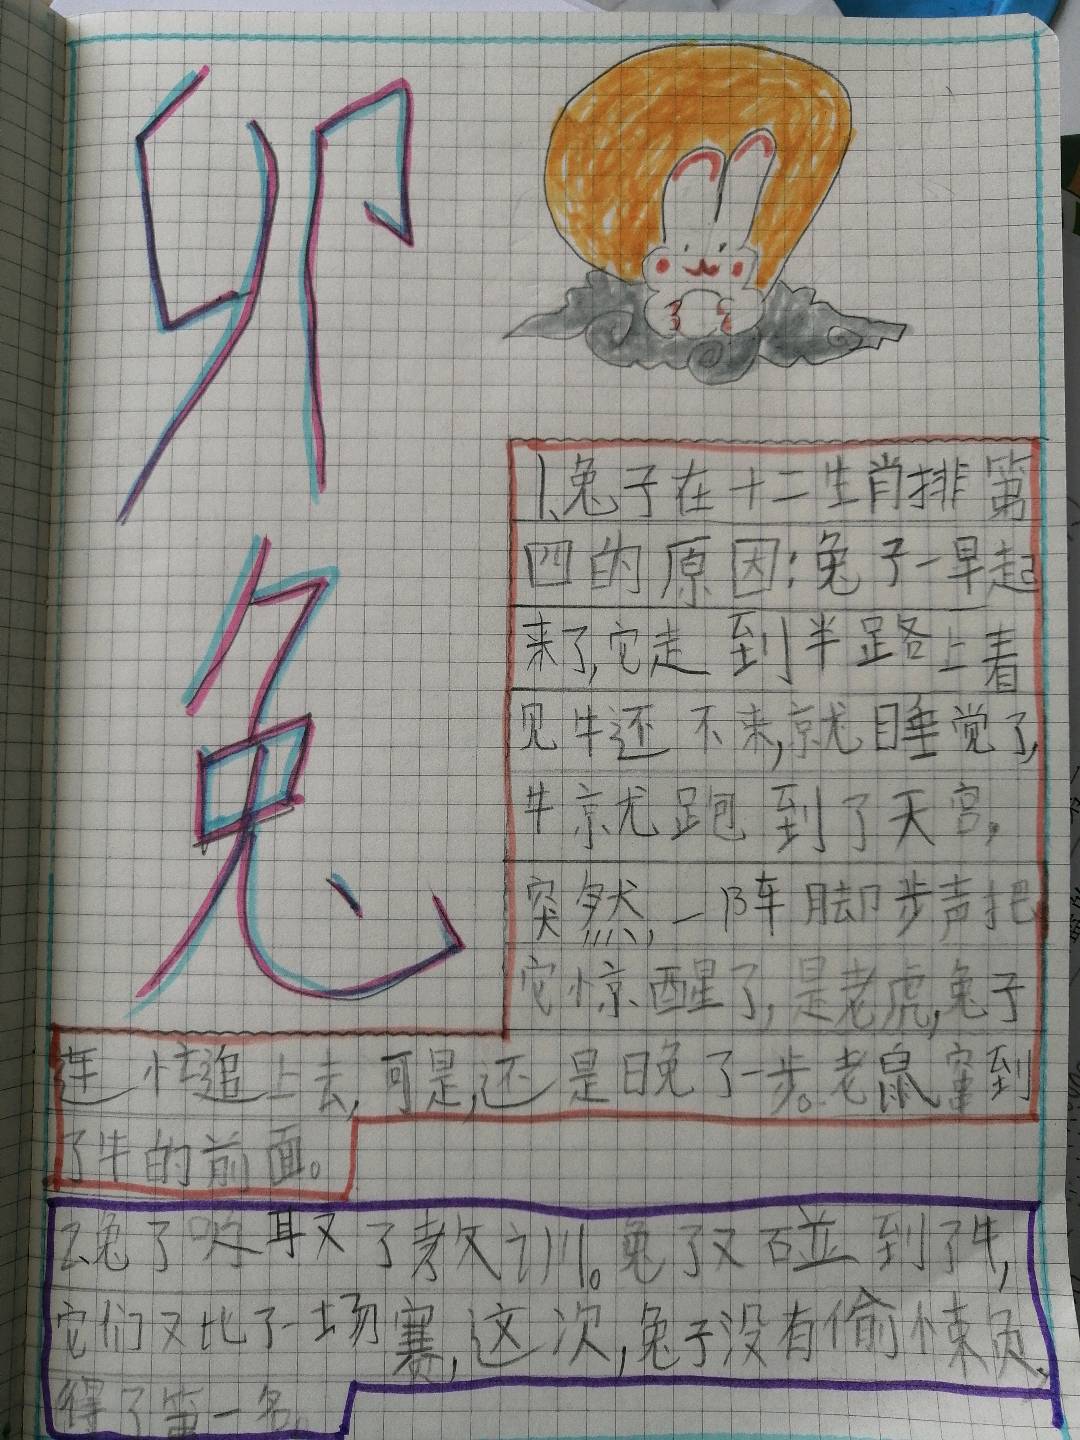 卯
兔
1、兔子在十二生肖排第
四的原因：兔子一早起
来了，它走到半路上看
见牛还不来，就睡觉了，
牛就跑到了天宫，
突然，一阵脚步声把
它惊醒了，是老虎，兔子
连忙追上去，可是，还是晚了一步。老鼠窜到
了牛的前面。
2、兔子吸取了教训。兔子又碰到了牛，
它们又比了一场赛，这次，兔子没有偷懒，
得了第一名。